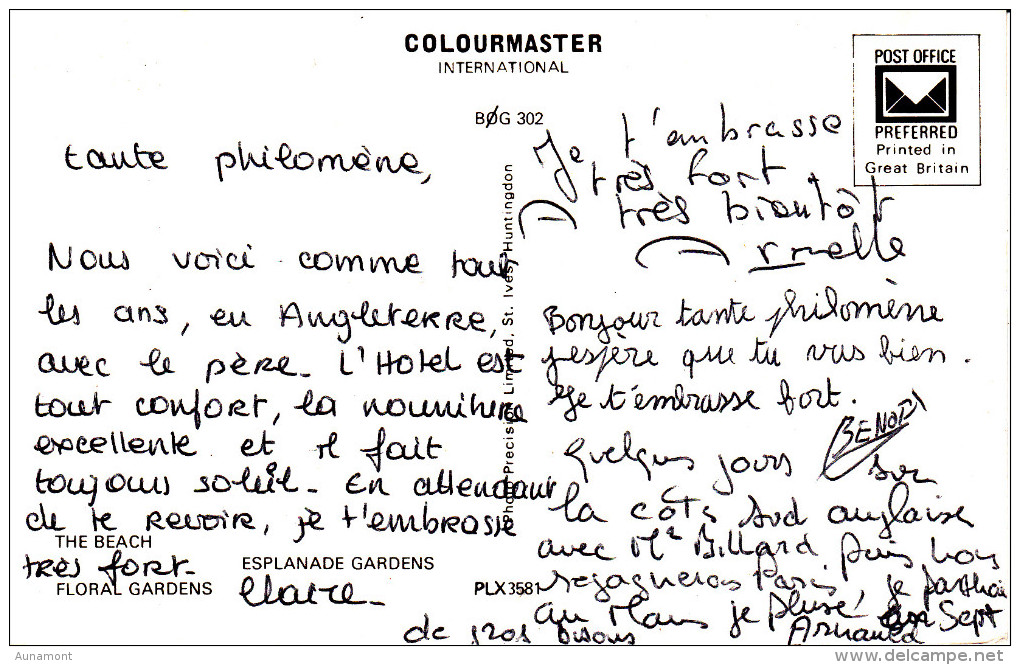 COLOURMASTER
INTERNATIONAL
POST OFFICE
PREFERRED
Printed in
Great Britain
BØG 302
tante philomène,
Nous voici comme tous
les ans, en Angleterre,
avec le père. L'Hotel est
tout confort, la nourriture
excellente et il fait
toujours soleil. En attendant
de te revoir, je t'embrasse
très fort.
Claire
THE BEACH
ESPLANADE GARDENS
FLORAL GARDENS
PLX3581
Photo Precision Limited, St. Ives, Huntingdon
Je t'ambrasse
très fort.
A très bientôt
Armelle
Bonjour tante philomène
j'espère que tu vas bien.
Je t'embrasse fort.
BENOIT
Quelques jours sur
la côte sud anglaise
avec Mr Billard puis nous
regagnerons Paris, je
au Mans je pense en Sept
de gros bisous Arnaud
Aunamont
delcampe.net